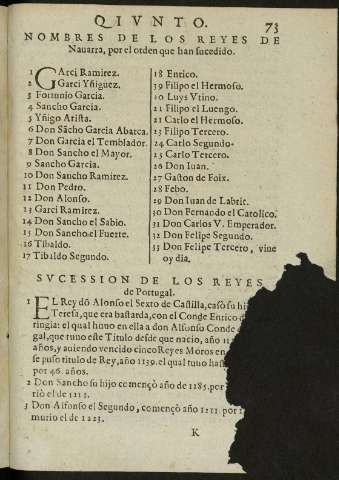 QIVNTO. 73
NOMBRES DE LOS REYES DE
Nauarra, por el orden que han sucedido.
1 GArci Ramirez.
2 Garci Yñiguez.
3 Fortunio Garcia.
4 Sancho Garcia.
5 Yñigo Arista.
6 Don Sãcho Garcia Abarca.
7 Don Garcia el Temblador.
8 Don Sancho el Mayor.
9 Sancho Garcia.
10 Don Sancho Ramirez.
11 Don Pedro.
12 Don Alonso.
13 Garci Ramirez.
14 Don Sancho el Sabio.
15 Don Sancho el Fuerte.
16 Tibaldo.
17 Tibaldo Segundo.
18 Enrico.
19 Filipo el Hermoso.
20 Luys Vtino.
21 Filipo el Luengo.
21 Carlo el Hermoso.
23 Filipo Tercero.
24 Carlo Segundo.
25 Carlo Tercero.
26 Don Iuan.
27 Gaston de Foix.
28 Febo.
29 Don Iuan de Labric.
30 Don Fernando el Catolico.
31 Don Carlos V. Emperador.
32 Don Felipe Segundo.
33 Don Felipe Tercero, viue
oy dia.
SVCESSION DE LOS REYES
de Portugal.
1 EL Rey dõ Alonso el Sexto de Castilla, casò su hi
Teresa, que era bastarda, con el Conde Enrico d
ringia: el qual huuo en ella a don Alfonso Conde d
gal, que tuuo este Titulo desde que nacio, año 11
años, y auiendo vencido cinco Reyes Moros en
se puso titulo de Rey, año 1139. el qual tuuo has
por 46. años.
2 Don Sancho su hijo començò año de 1185. por
riò el de 1212.
3 Don Alfonso el Segundo, començò año 1212. por
murio el de 1223.
K